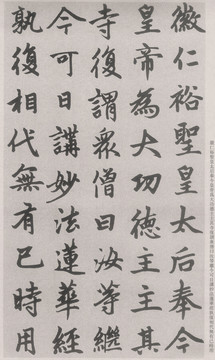 徽仁裕聖皇太后奉今
皇帝為大功德主主其
寺復謂眾僧曰汝等繼
今可日講妙法蓮華經
孰復相代無有已時用